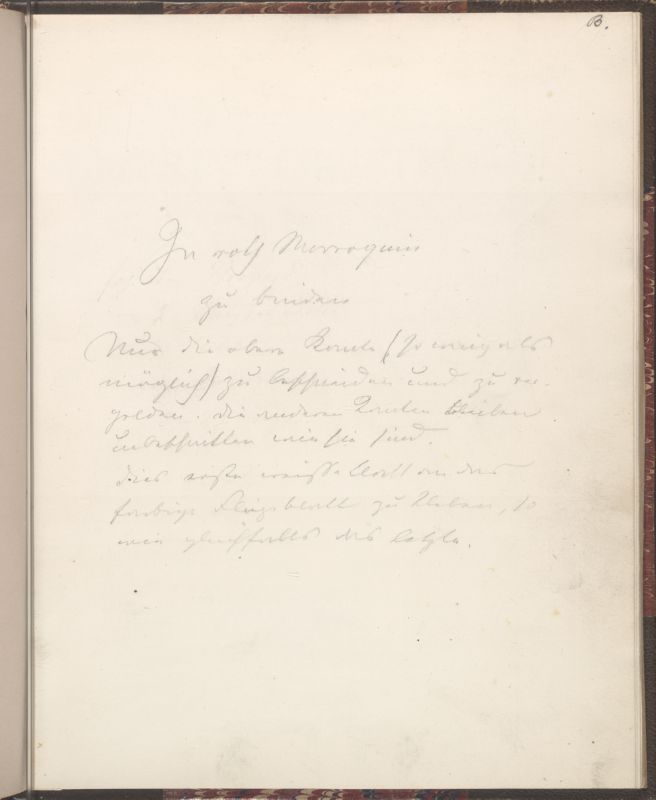 B.
In roth Marroquin
zu binden
Nur die obere Kante (so wenig als
möglich) zu beschneiden und zu ver-
golden. Die anderen Kanten bleiben
unbeschnitten wie sie sind.
Dies erste weisse Blatt an das
farbige Fliegeblatt zu kleben, so
wie gleichfalls das letzte.